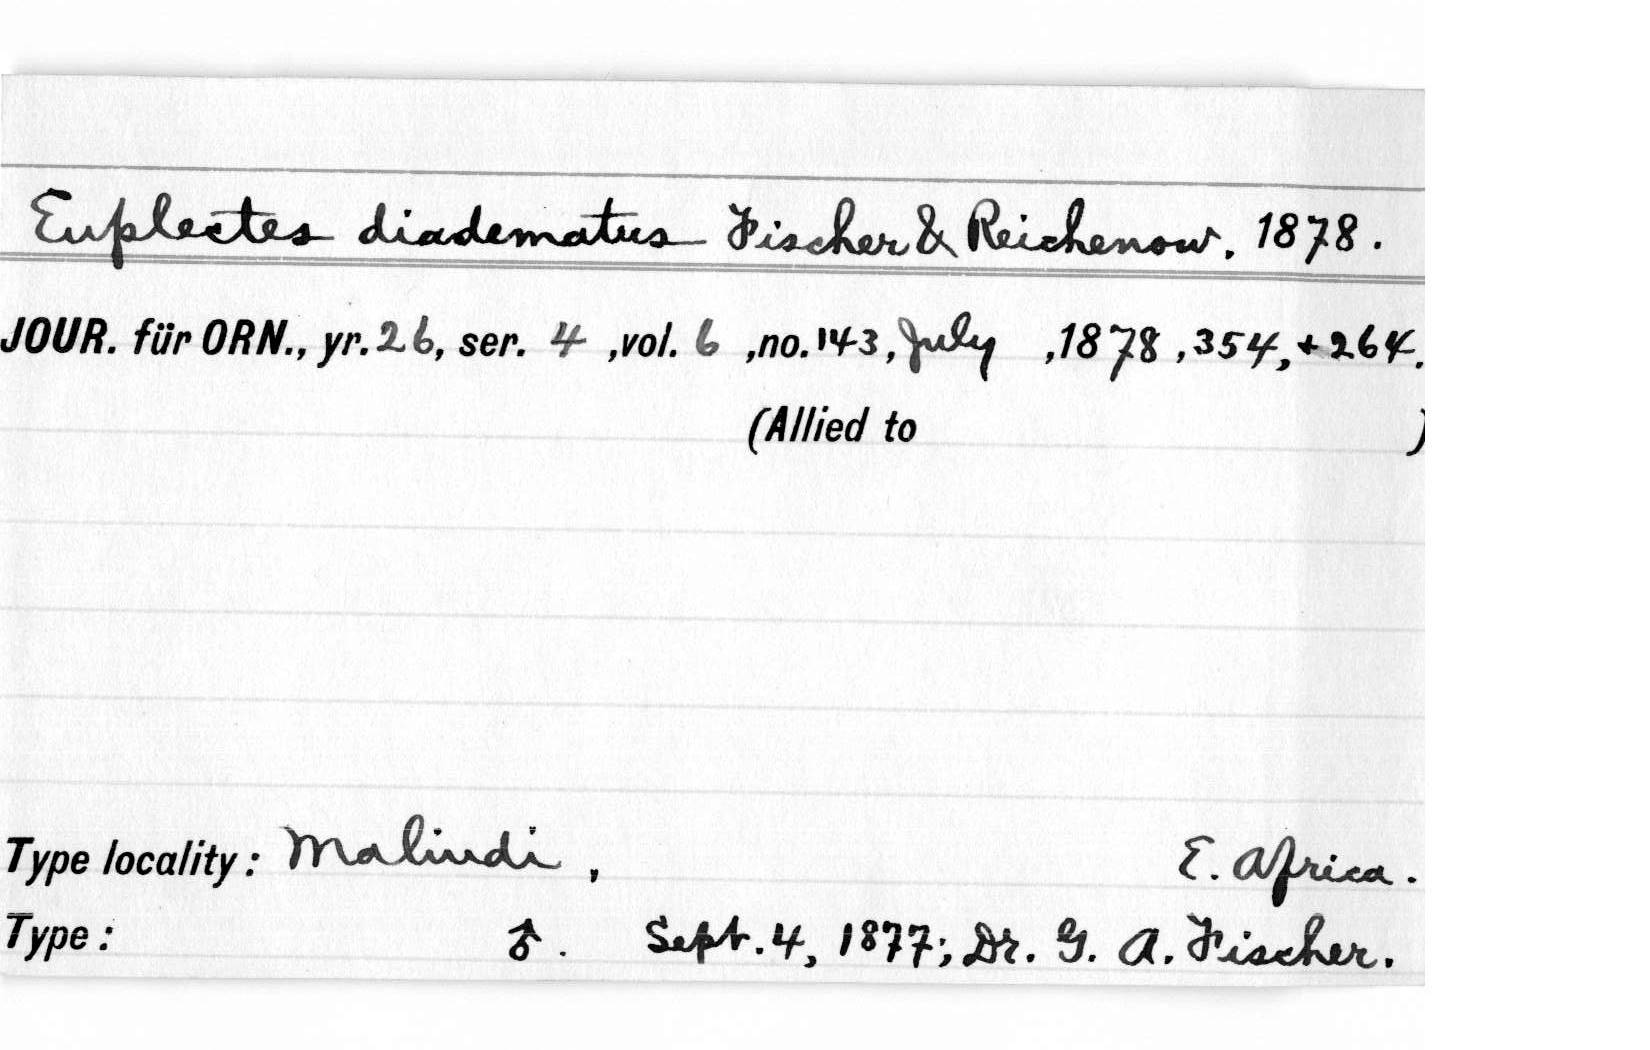 Euplectes diadematus Fischer & Reichenow, 1878.
JOUR. für ORN., yr. 26, ser. 4 ,vol. 6 ,no. 143, July ,1878 ,354, + 264.
(Allied to )
Type locality : Malindi , E. Africa .
Type : ♂ . Sept. 4, 1877; Dr. G. A. Fischer.